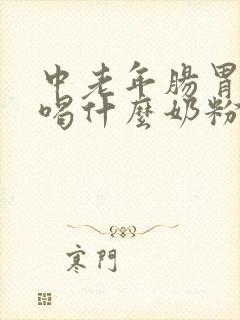 中老年腸胃
喝什麼奶粉
寒門